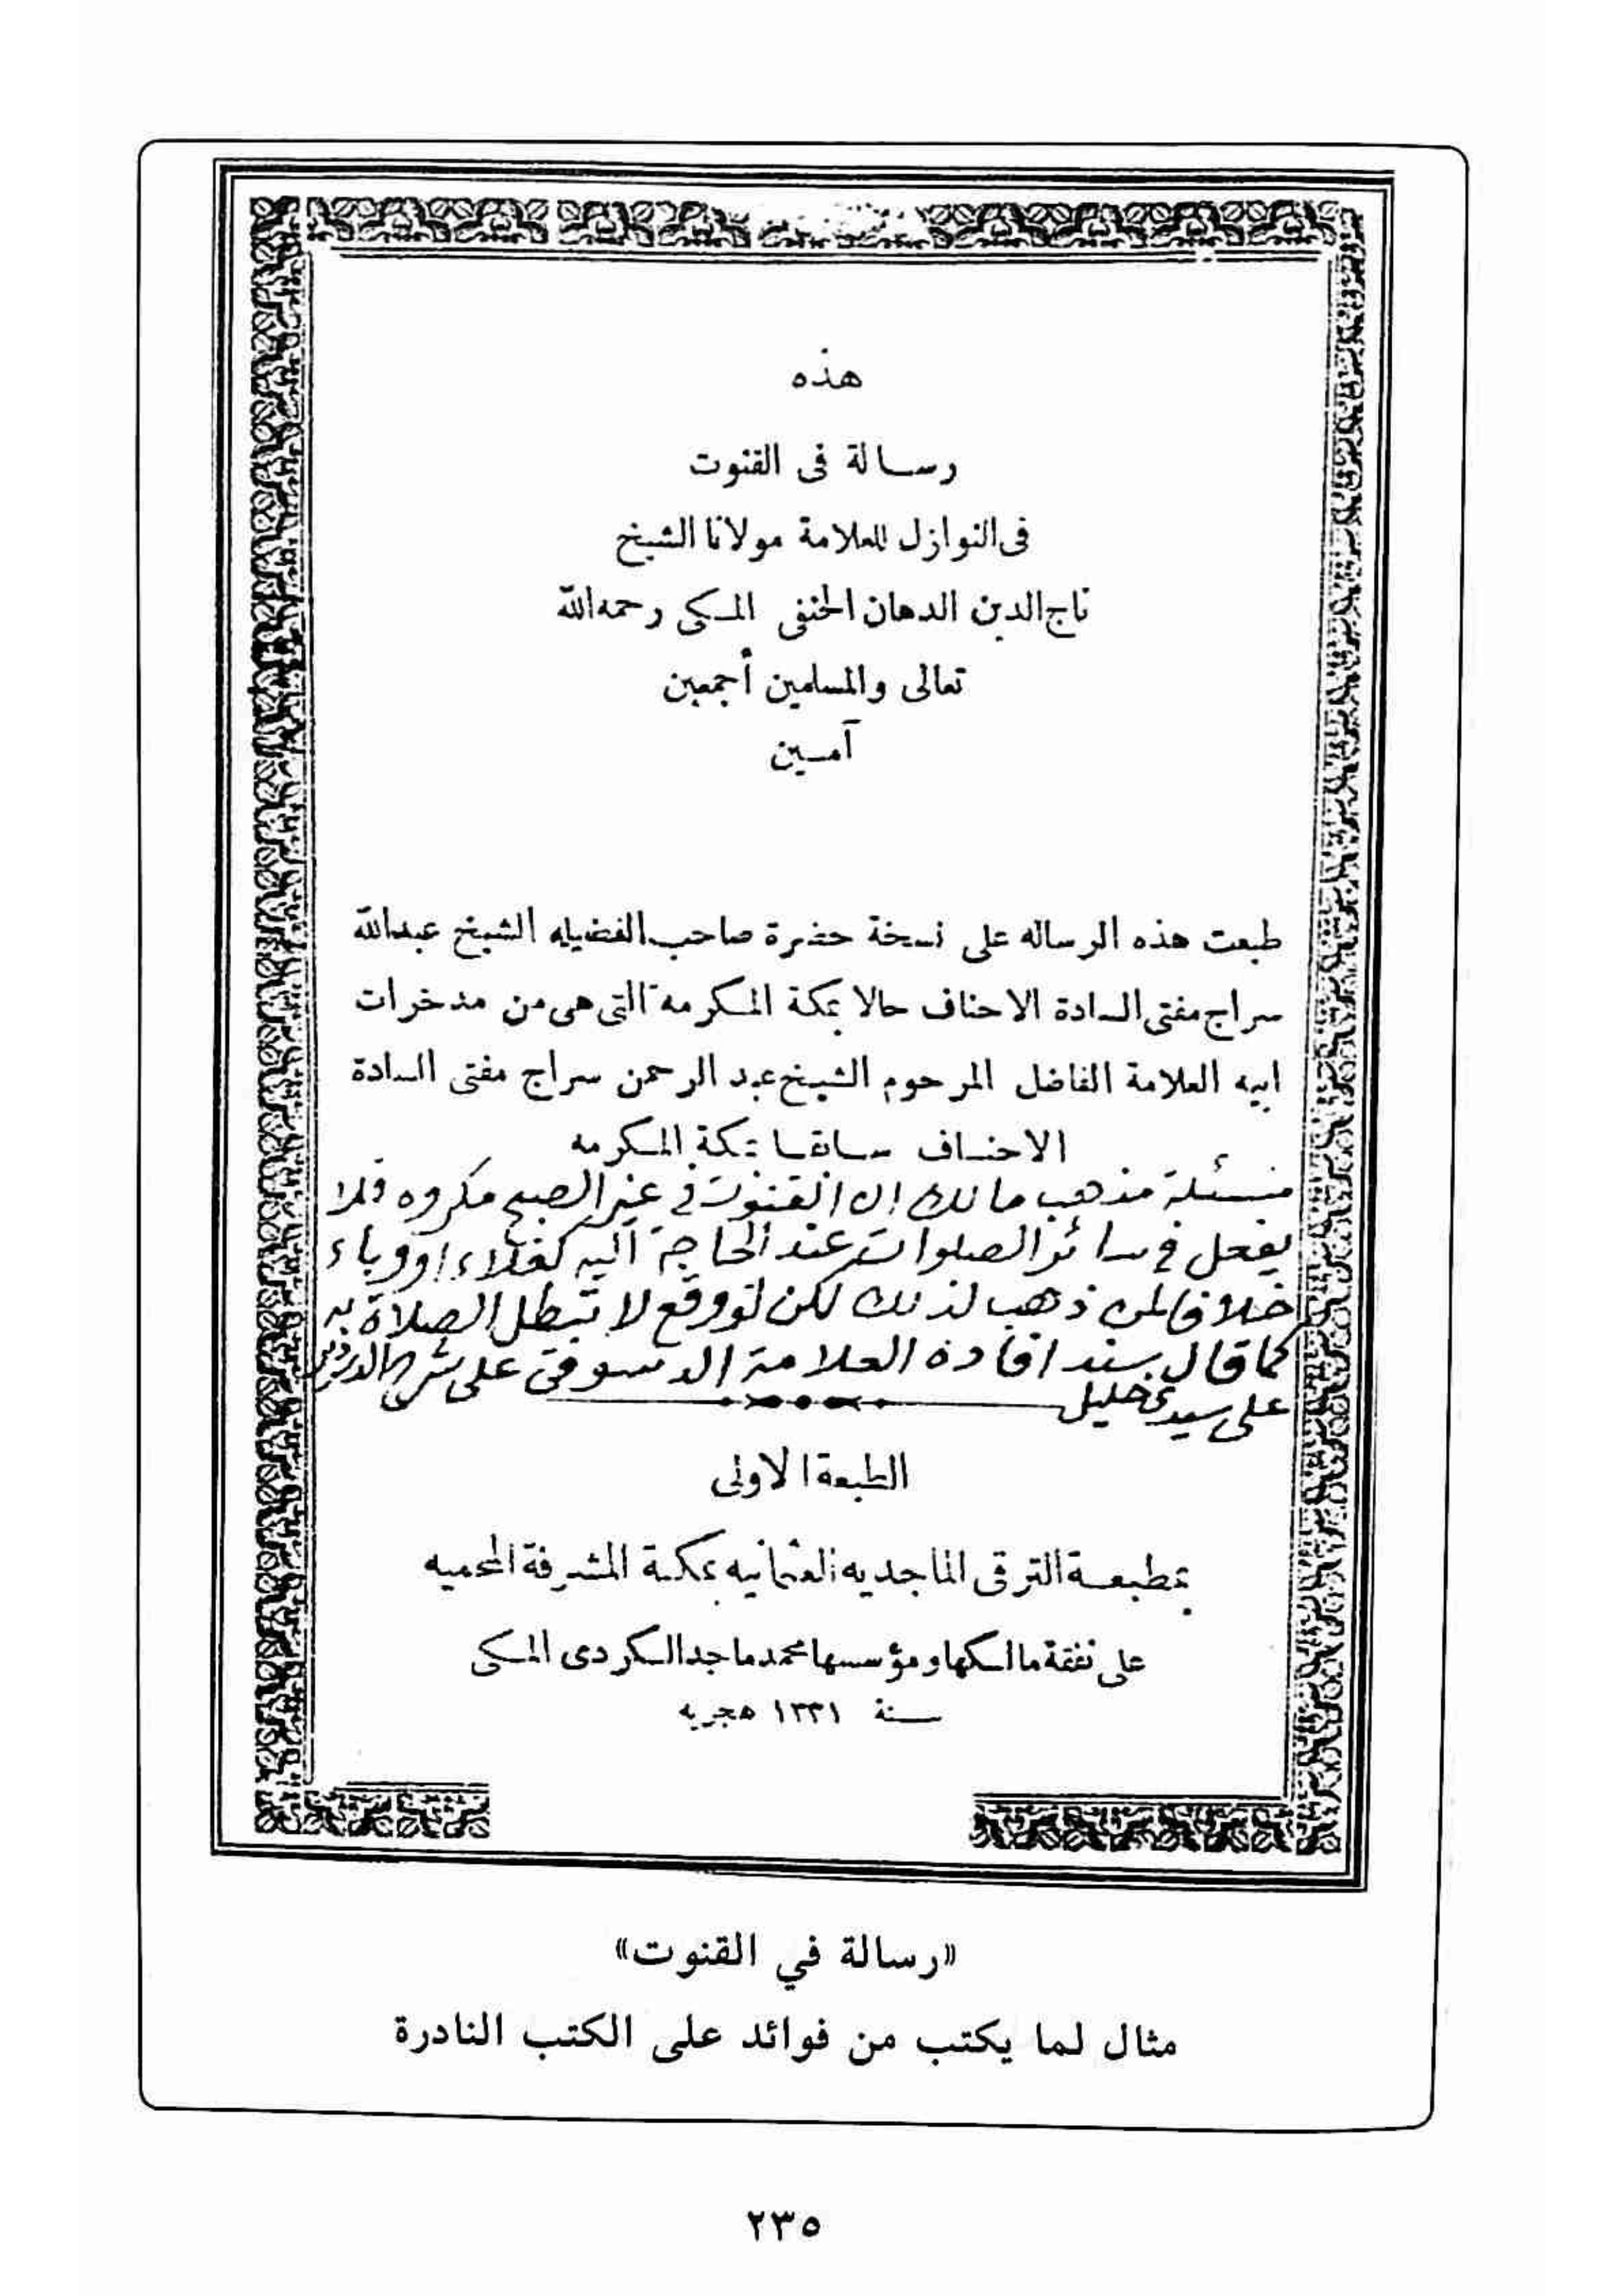 هذه
رسالة فى القنوت
فى النوازل للعلامة مولانا الشيخ
تاج الدين الدهان الحنفى المكى رحمه الله
تعالى والمسلمين أجمعين
آمين
طبعت هذه الرساله على نسخة حضرة صاحب الفضيله الشيخ عبدالله
سراج مفتى السادة الاحناف حالا بمكة المكرمه التى هى من مدخرات
ابيه العلامة الفاضل المرحوم الشيخ عبد الرحمن سراج مفتى السادة
الاحناف سابقا بمكة المكرمه
مسئلة مذهب مالك ان القنوت في غير الصبح مكروه فلا
يفعل في سائر الصلوات عند الحاجة اليه كغلاء او وباء
خلافا لمن ذهب لذلك لكن لو وقع لا تبطل الصلاة به
كما قال سند افاده العلامة الدسوقي على شرح الدردير
على سيدي خليل
الطبعة الاولى
بمطبعة الترقى الماجديه العثمانيه بمكة المشرفة المحميه
على نفقة مالكها ومؤسسها محمد ماجد الكردى المكى
سنة ١٣٣١ هجريه
«رسالة في القنوت»
مثال لما يكتب من فوائد على الكتب النادرة
٢٣٥